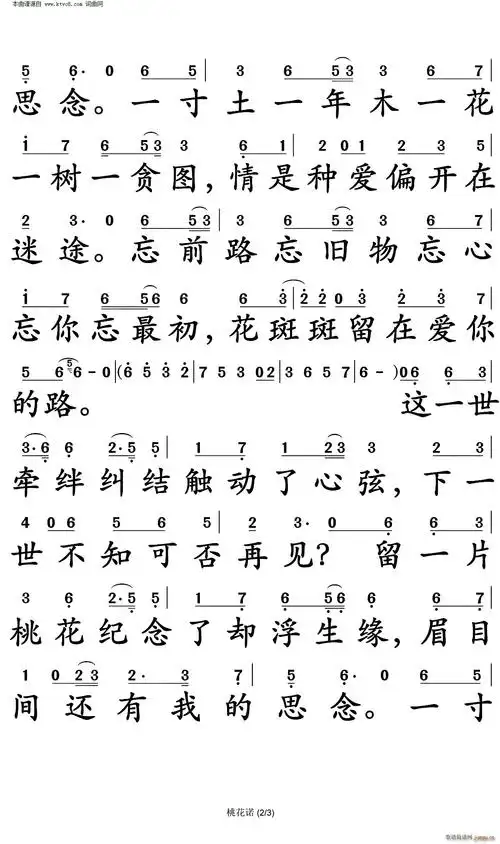 本曲谱源自 www.ktvc8.com 词曲网
5 6· 0 6 5 | 3 6 5 3 3 6 7 |
思念。一寸土一年木一花
1 7 6 5 3 3 6 1 | 2 0 1 2 3 5 |
一树一贪图,情是种爱偏开在
2 3· 0 6 5 3 | 3 6 5 3 3 6 7 |
迷途。忘前路忘旧物忘心
1 7 6 5 6 6 6 3 | 2 2 0 3 2 3 7 |
忘你忘最初,花斑斑留在爱你
5 6 5 6 - 0 | (6 5 3 2 | 7 5 3 0 2 | 3 6 5 7 | 6 - ) 0 6 6 3 |
的路。 这一世
3·6 6 2·5 5 | 1 7 1 2 3 3 2 3 |
牵绊纠结触动了心弦,下一
4 0 6 5 6 5 | 2 3· 0 6 6 3 |
世不知可否再见? 留一片
3 6 2·5 5 | 1 7 1 5 6 6 6 7 |
桃花纪念了却浮生缘,眉目
1 0 2 3 2· 3 7 | 5 6· 0 6 5 |
间还有我的思念。一寸
桃花诺 (2/3)